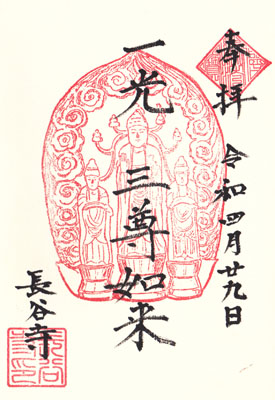 奉拝
令和四月廿九日
一光三尊如来
長谷寺